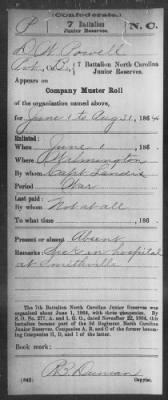 (Confederate.)
P 7 Battalion N. C.
Junior Reserves.
D. W. Powell
7 Battalion North Carolina
Junior Reserves.
Appears on
Company Muster Roll
of the organization named above,
for June 1 to Aug 31, 1864
Enlisted:
When June 1, 186
Where Wilmington
By whom Capt Landis
Period War
Last paid:
By whom Not at all
To what time , 186
Present or absent Absent
Remarks: Sick in hospital
at Smithville
The 7th Battalion North Carolina Junior Reserves was
organized about June 1, 1864, with three companies. By
S. O. No. 277, A. and I. G. O., dated November 22, 1864, this
battalion became part of the 3d Regiment North Carolina
Junior Reserves, Companies A, B, and C of the former becoming
Companies
Book mark:
R. B. Duncan
(642) Copyist.